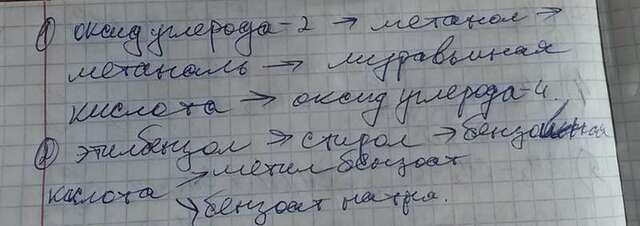 1) оксид углерода-2 → метанол →
метаналь → муравьиная
кислота → оксид углерода-4.
2) этилбензол → стирол → бензойная
кислота → метилбензоат
↘ бензоат натрия.